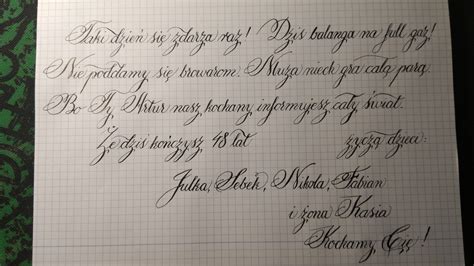 Taki dzień się zdarza raz! Dziś balanga na full gaz!
Nie poddamy się browarom. Muza niech gra całą parą.
Bo Ty, Artur nasz kochany informujesz cały świat.
Że dziś kończysz 48 lat życzą dzieci:
Julka, Sebek, Nikola, Fabian
i żona Kasia
Kochamy Cię!